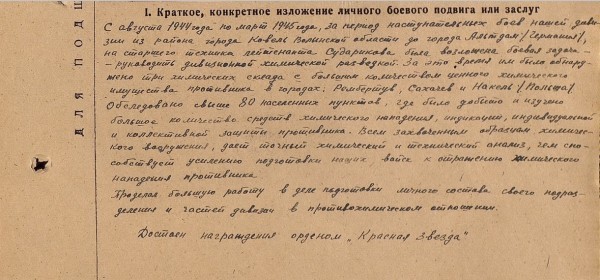 ДЛЯ ПОДШ
I. Краткое, конкретное изложение личного боевого подвига или заслуг
С августа 1944 года по март 1945 года, за период наступательных боев нашей диви-
зии из района города Ковель Волынской области до города Альтдам /Германия/,
на старшего техника лейтенанта Сударикова была возложена боевая задача -
- руководить дивизионной химической разведкой. За это время им было обнару-
жено три химических склада с большим количеством ценного химического
имущества противника в городах, Рембертув, Сахачев и Накель /Польша/.
Обследовано свыше 80 населенных пунктов, где было добыто и изучено
большое количество средств химического нападения, индикации, индивидуальной
и коллективной защиты противника. Всем захваченным образцам химичес-
кого вооружения, дает точный химический и технический анализ, чем спо-
собствует усилению подготовки наших войск к отражению химического
нападения противника.
Проделал большую работу в деле подготовки личного состава своего подраз-
деления и частей дивизии в противохимическом отношении.
Достоин награждения орденом „Красная Звезда"